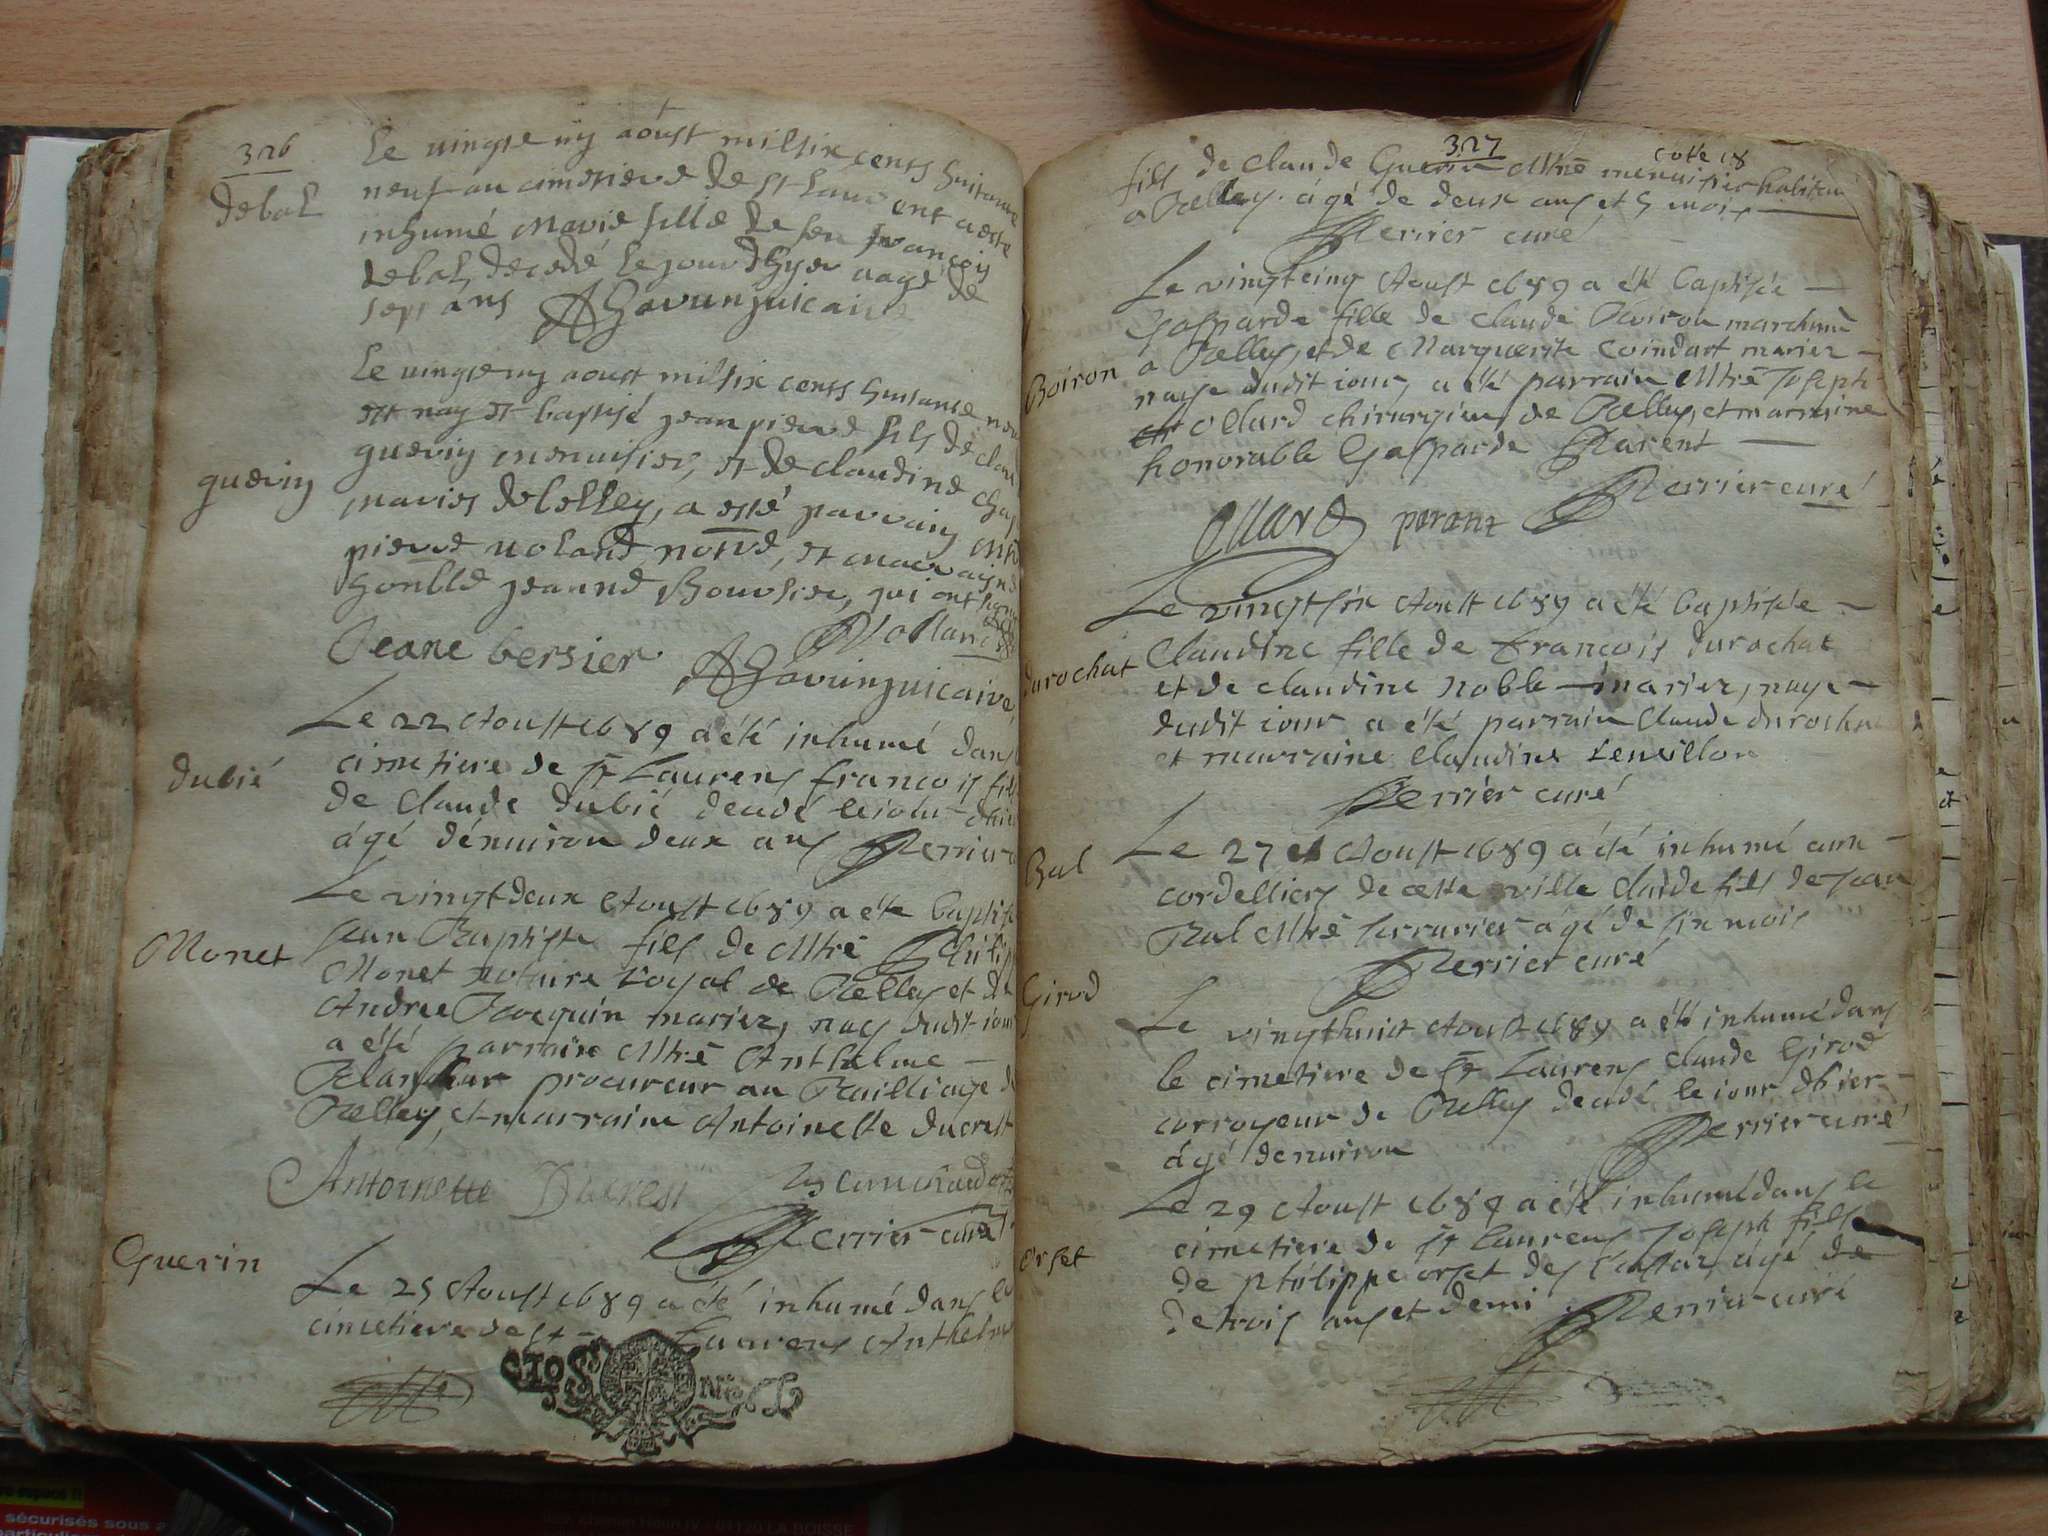 326
debal
Le vingt un aoust mil six cents huitante
neuf au cimetiere de st Laurent a este
inhumé Marie fille de feu françois
debal, decedé le jour dhyer aagé de
sept ans
Le vingt aoust mil six cents huitante neuf
est nay et baptisé jean pierre fils de
guerin
guerin menuisier, et de claudine
maries de belley, a esté parrain
pierre voland notre, et marraine
honble jeanne Boursier, qui ont
Volland
Jeane bersier
Le 22 Aoust 1689 a été inhumé dans
dubié
cimetiere de st Laurens francois fils
de claude dubié decedé le iour
âgé dénuiron deux ans Perrier
Le vingt deux Aoust 1689 a été baptisé
Monet
Jean Baptiste fils de Mtre
Monet notaire royal de Belley et de
Andree Jocquin mariez, nay dudit iour
a été parrain Mtre Anthelme
procureur au Bailliage de
Belley, et marraine Antoinette ducrest
Antoinette Ducrest
Perrier curé
Guerin
Le 25 Aoust 1689 a été inhumé dans le
cimetiere de st Laurens Anthelme
327
cotte 18
fils de claude Guerin Mtre menuisier habitant
a Belley. âgé de deux ans et 5 mois
Perrier curé
Le vingtcinq Aoust 1689 a été baptisée
Gasparde fille de claude Boiron marchand
Boiron
a Belley, et de Marguerite Coindart mariez
naye dudit iour, a été parrain Mtre Joseph
Ollard chirurgien de Belley, et marraine
honorable Gasparde Parent
Perrier curé
Ollard parant
Le vingtsix Aoust 1689 a été baptisée
durochat
Claudine fille de François durochat
et de claudine Noble mariez, naye
dudit iour a été parrain Claude durochat
et marraine Claudine
Perrier curé
Le 27 Aoust 1689 a été inhumé aux
Bal
cordelliers de cette ville claude fils de Jean
Bal Mtre serrurier âgé de six mois
Perrier curé
Girod
Le vingthuit Aoust 1689 a été inhumé dans
le cimetiere de st Laurens claude Girod
corroyeur de Belley decedé le iour dhier
âgé denuiron
Perrier curé
Le 29 Aoust 1689 a été inhumé dans le
Orset
cimetiere de st Laurens Joseph fils
de philippe orset des âgé de
de trois ans et demi
Perrier curé
sécurisés sous